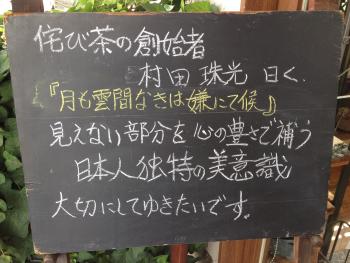 侘び茶の創始者
村田 珠光 曰く、
『月も雲間なきは嫌にて候』
見えない部分を心の豊さで補う
日本人独特の美意識
大切にしてゆきたいです。